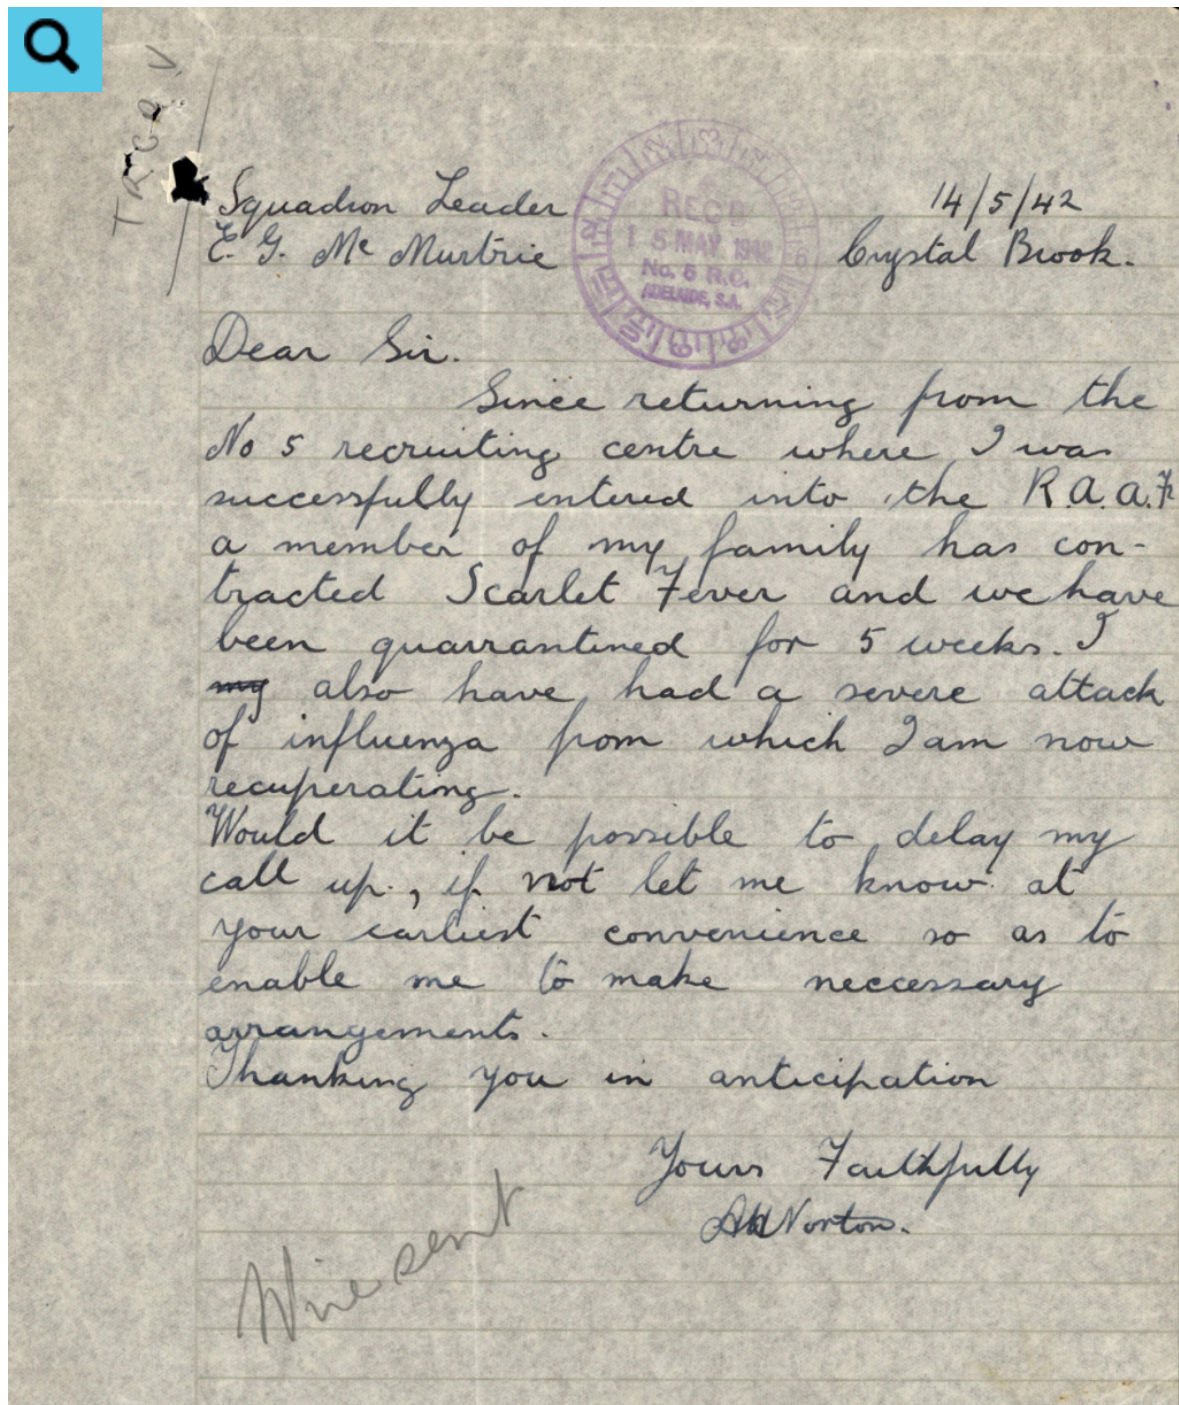 Squadron Leader
E. G. Mc Murtrie
14/5/42
Crystal Brook.
RECD
15 MAY 1942
No. 5 R.C.
ADELAIDE, S.A.
Dear Sir.
Since returning from the
No 5 recruiting centre where I was
successfully entered into the R.A.A.F
a member of my family has con-
tracted Scarlet Fever and we have
been quarrantined for 5 weeks. I
my also have had a severe attack
of influenza from which I am now
recuperating.
Would it be possible to delay my
call up., if not let me know at
your earliest convenience so as to
enable me to make neccessary
arrangements.
Thanking you in anticipation
Yours Faithfully
Norton.
Wire sent